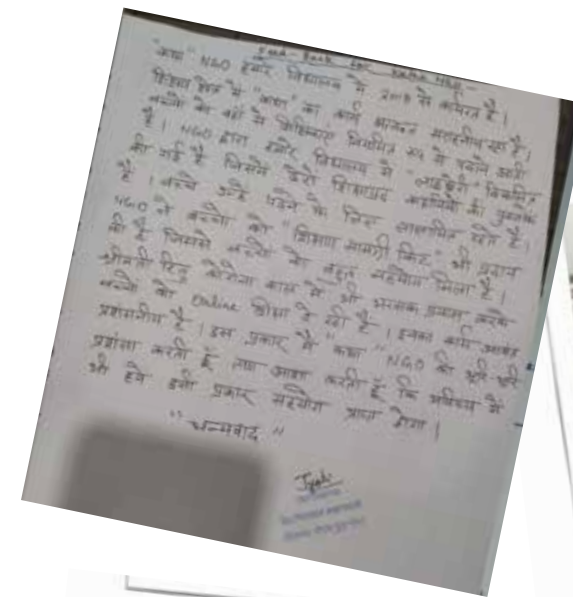 Feed-Back for Katha NGO -
"कथा" NGO हमारे विद्यालय में 2018 से कार्यरत है।
शिक्षा क्षेत्र में "कथा" का कार्य अत्यन्त सराहनीय रहा है।
बच्चों को वहाँ से शिक्षिकाएं नियमित रूप से पढ़ाने आती
हैं। NGO द्वारा हमारे विद्यालय में "लाइब्रेरी" विकसित
की गई है जिसमें ढेरों शिक्षाप्रद कहानियों की पुस्तकें
हैं। बच्चे उन्हें पढ़ने के लिए लालायित रहते हैं।
NGO ने बच्चों को "शिक्षण सामग्री किट" भी प्रदान
की है जिससे बच्चों को बहुत सहयोग मिला है।
श्रीमती रितु कोरोना काल में भी भरसक प्रयास करके
बच्चों को Online शिक्षा दे रही हैं। इनका कार्य अत्यन्त
प्रशंसनीय है। इस प्रकार मैं "कथा" NGO की भूरि भूरि
प्रशंसा करती हूँ तथा आशा करती हूँ कि भविष्य में
भी हमें इसी प्रकार सहयोग प्राप्त होगा।
"धन्यवाद"
Jyoti